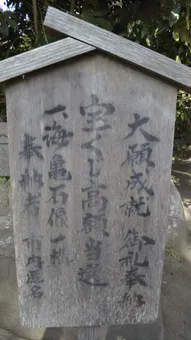 大願成就 御礼奉納
宝くじ高額当選
一、海亀石像 一基
奉納者 市内匿名